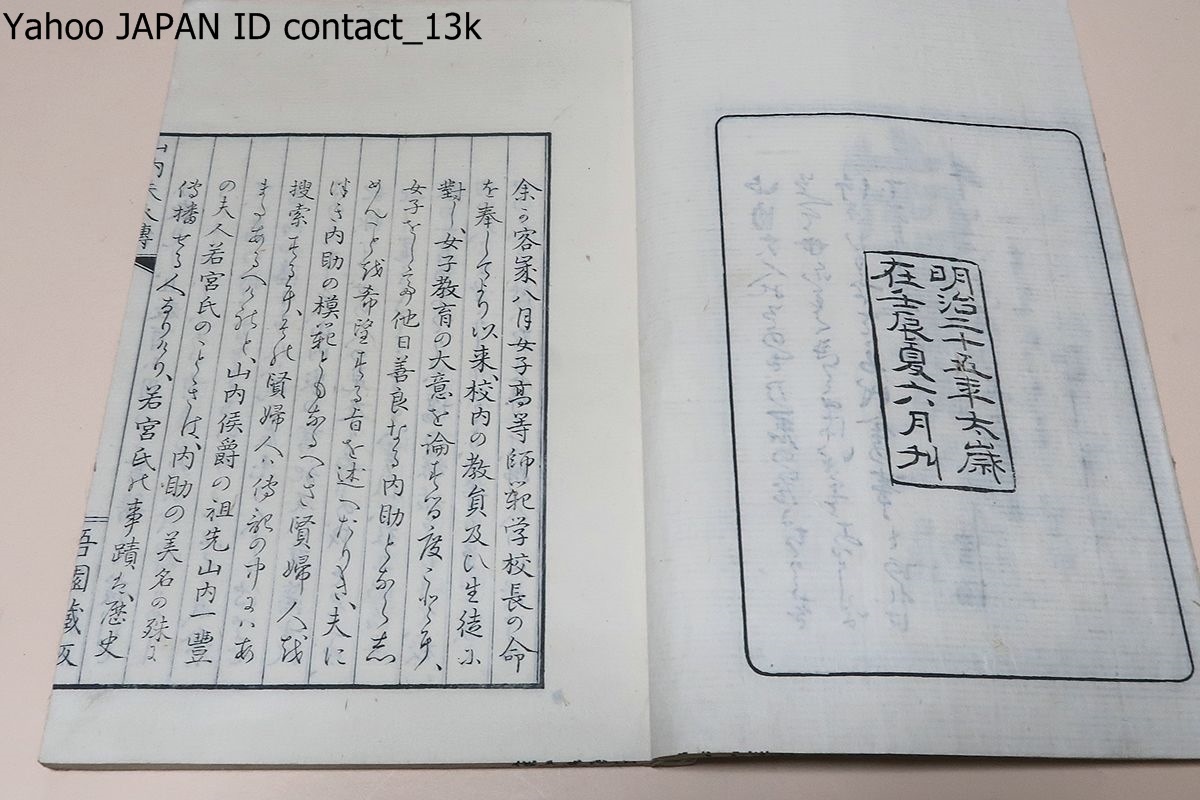 Yahoo JAPAN ID contact_13k
明治二十五年太歳
在壬辰夏六月刊
余か客歳八月女子高等師範学校長の命
を奉してより以来、校内の教員及ひ生徒に
對し、女子教育の大意を論する度ことに、
女子をして他日善良なる内助とならし
めんことを希望する旨を述へおりき、夫に
つき内助の模範ともなるへき賢婦人を
搜索するに、その賢婦人ハ傳記の中にハあ
またあるへけれと、山内侯爵の祖先山内一豐
の夫人若宮氏のこときは、内助の美名の殊に
傳播せる人なりけり、若宮氏の事蹟は、歴史
山内夫人傳
吾園藏版